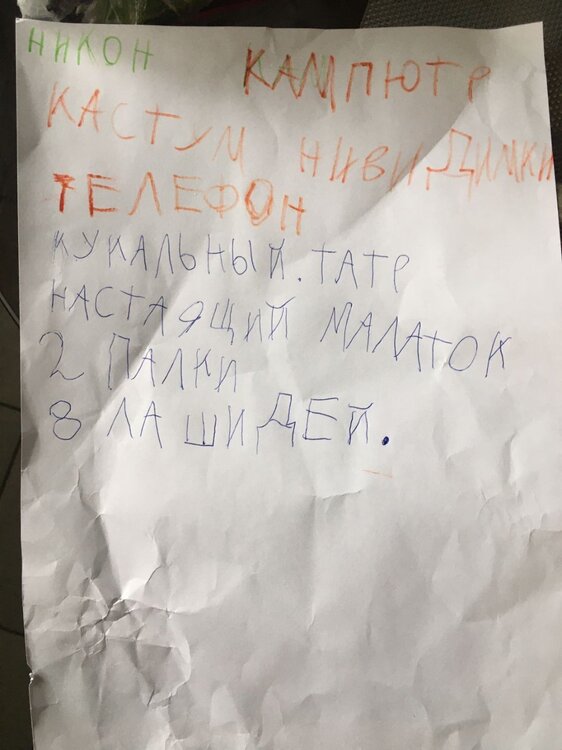 НИКОН КАМПЮТР
КАСТУМ НИВИДИМКИ
ТЕЛЕФОН
КУКАЛЬНЫЙ.ТАТР
НАСТАЯЩИЙ МАЛАТОК
2 ПАЛКИ
8 ЛАШИДЕЙ.